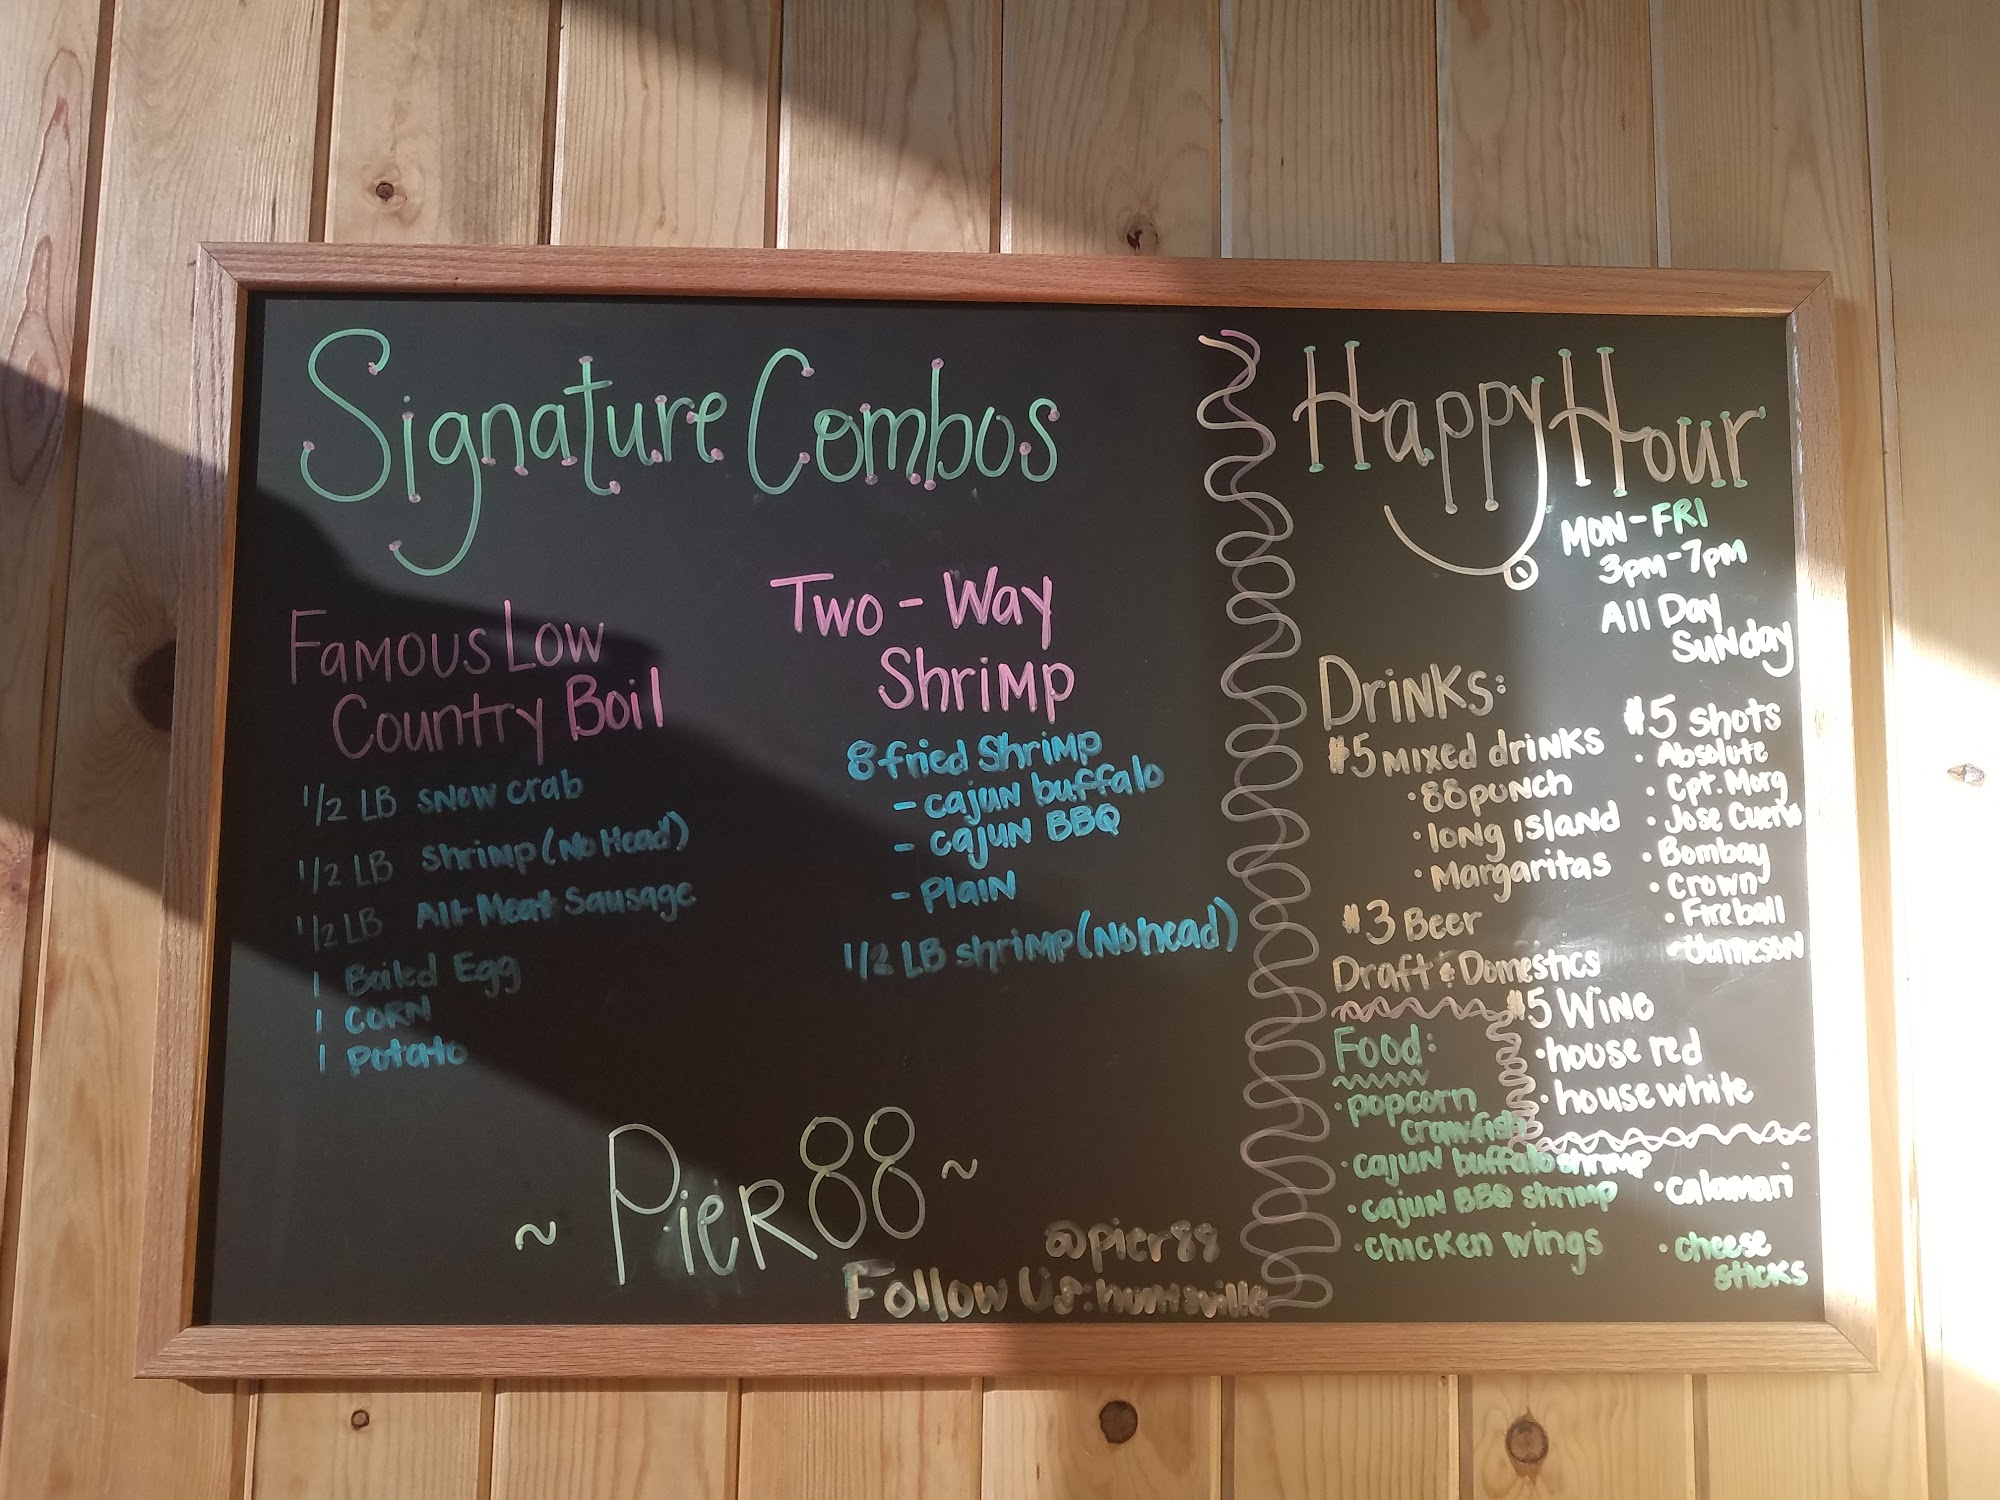 Signature Combos
Famous Low
Country Boil
1/2 LB snow crab
1/2 LB shrimp (No Head)
1/2 LB All Meat Sausage
1 Boiled Egg
1 CORN
1 Potato
Two-Way
Shrimp
8 fried Shrimp
- cajun buffalo
- cajun BBQ
- Plain
1/2 LB shrimp (No head)
~ Pier 88 ~
@pier88
Follow Us: huntsville
Happy Hour
MON-FRI
3pm-7pm
All Day
Sunday
Drinks:
$5 mixed drinks
· 88 punch
· long island
· Margaritas
$3 Beer
Draft & Domestics
$5 shots
· Absolute
· Cpt. Morg
· Jose Cuervo
· Bombay
· Crown
· Fireball
· Jameson
$5 Wine
· house red
· house white
Food:
· popcorn
crawfish
· cajun buffalo shrimp
· cajun BBQ shrimp
· chicken wings
· calamari
· cheese
sticks